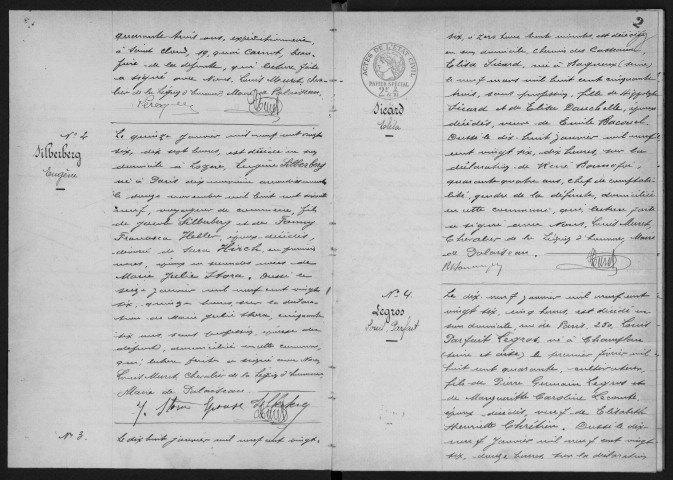 quarante trois ans, expéditionnaire,
à Saint Cloud, 19, quai Carnot, beau
frère de la défunte, qui, lecture faite
a signé avec Nous, Louis Muret, che-
lier de la Légion d'honneur, Maire de Palaiseau.
N° 2
Silberberg
Eugène
Le quinze janvier mil neuf cent vingt
six, dix sept heures, est décédé en son
domicile à Lozère, Eugène Silberberg
né à Paris dix neuvième arrondissement
le novembre mil huit cent soixante
neuf, voyageur de commerce, fils
de Jacob Silberberg et de Fanny
Francesca Heller, époux décédés,
divorcé de Sara Hirch, en premières
noces, époux en secondes noces de
Marie Julie Stora. Dressé le
seize janvier mil neuf cent vingt
six, quinze heures, sur la déclara-
tion de Marie Julie Stora, cinquante
six ans, sans profession, épouse du
défunt, domiciliée en cette commune,
qui, lecture faite a signé avec Nous
Louis Muret, Chevalier de la Légion d'honneur
Maire de Palaiseau.
J. Stora épouse Silberberg
N° 3.
Le dix huit janvier mil neuf cent vingt-
2
ACTES DE L'ÉTAT CIVIL
PAPIER SPÉCIAL
Sicard
Elisa
six, à heure trente minutes, est décédée
en son domicile, chemin des
Elisa Sicard, née à
le neuf mars mil huit cent cinquante
trois, sans profession, fille de Hippolyte
Sicard et de Elisa Dauchelle, époux
décédés, veuve de Emile Bacouel.
Dressé le dix huit janvier mil neuf
cent vingt six, dix heures, sur la
déclaration de René
quarante quatre ans, chef de comptabi-
lité, gendre de la défunte, domicilié
en cette commune, qui, lecture faite
a signé avec Nous, Louis Muret,
Chevalier de la Légion d'honneur, Maire
de Palaiseau.
N° 4.
Legros
Louis Parfait
Le dix neuf janvier mil neuf cent
vingt six, cinq heures, est décédé en
son domicile, rue de Paris, 230, Louis
Parfait Legros, né à Champlan
(Seine et Oise) le premier février mil
huit cent quarante, cultivateur,
fils de Pierre Germain Legros et
de Marguerite Caroline Lecomte,
époux décédés, veuf de Elisabeth
Henriette Chrétien. Dressé le dix
neuf janvier mil neuf cent vingt
six, douze heures sur la déclaration